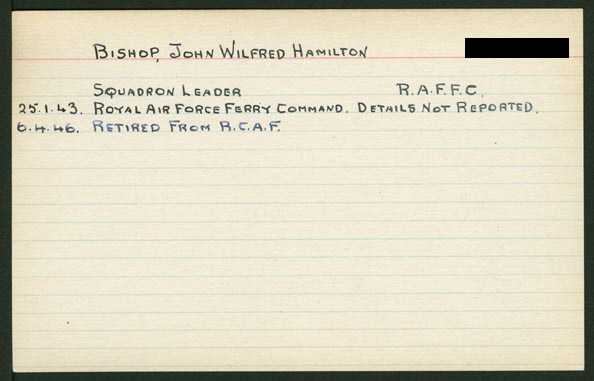 BISHOP, JOHN WILFRED HAMILTON
SQUADRON LEADER R.A.F.F.C.
25.1.43. ROYAL AIR FORCE FERRY COMMAND. DETAILS NOT REPORTED.
6.4.46. RETIRED FROM R.C.A.F.